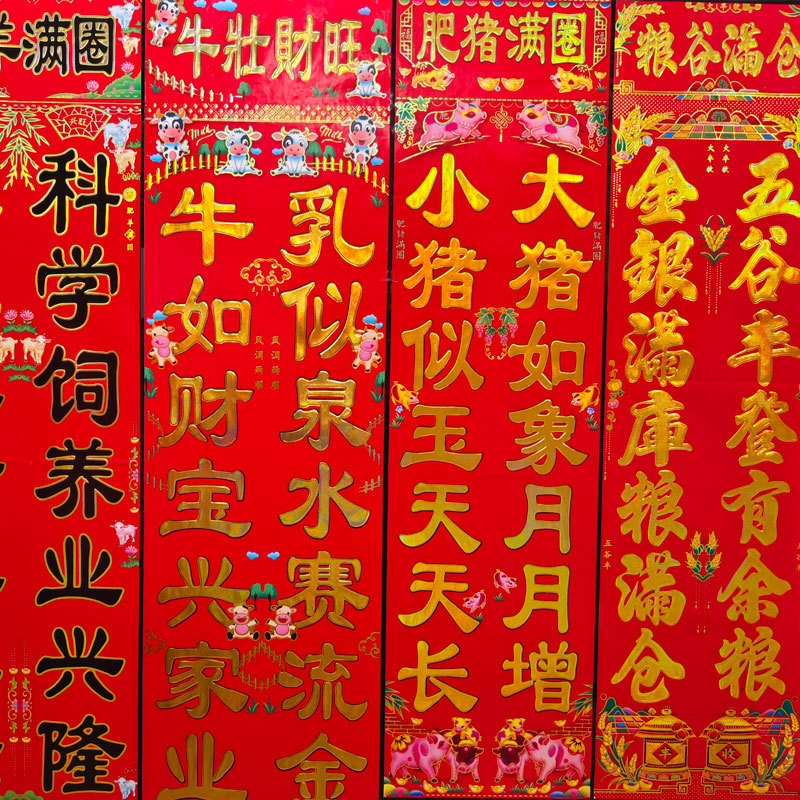 羊满圈
科学饲养业兴隆
牛壮財旺
乳似泉水赛流金
牛如财宝兴家业
肥猪满圈
大猪如象月月增
小猪似玉天天长
粮谷满仓
五谷丰登有余粮
金銀满庫粮满仓